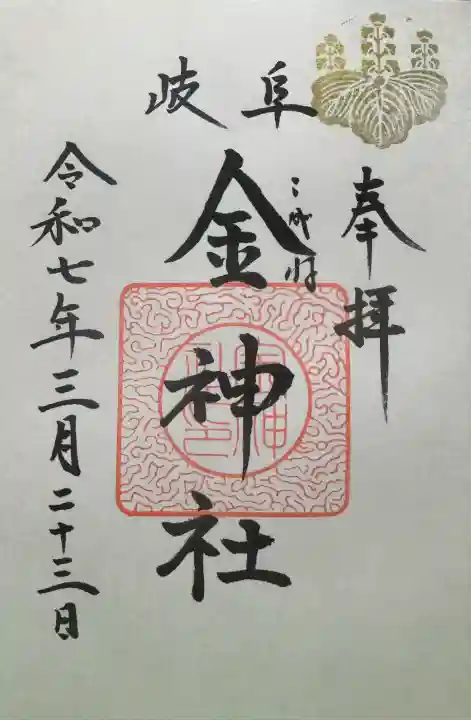 奉拝
岐阜
金神社
令和七年三月二十三日